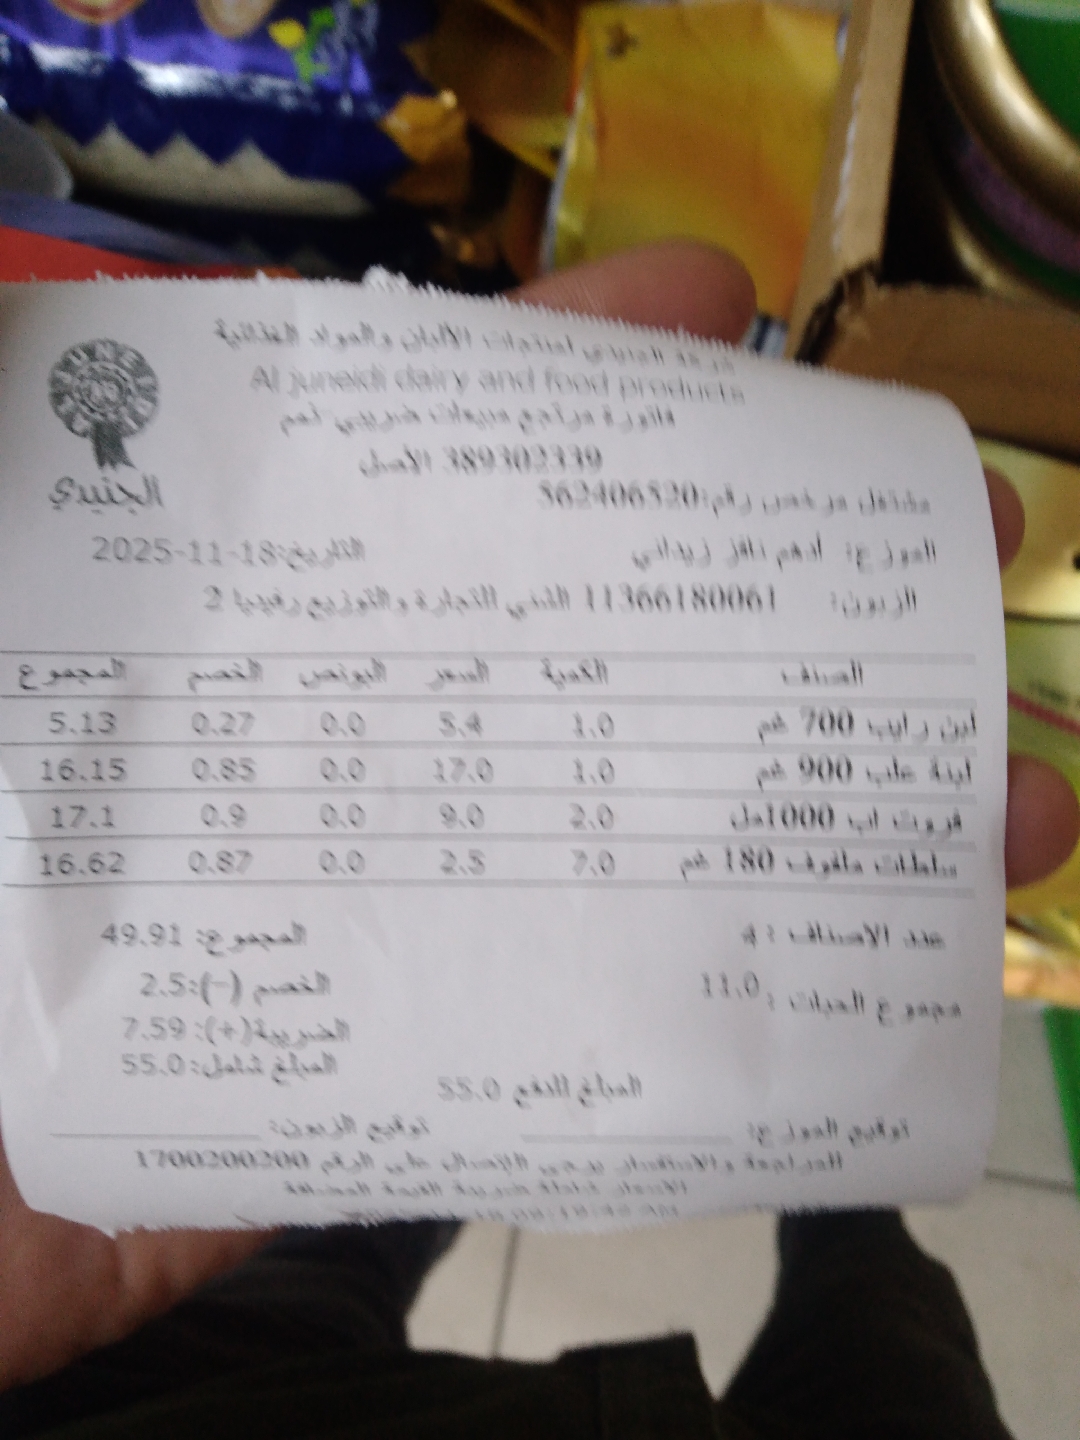 شركة الجنيدي لمنتجات الألبان والمواد الغذائية
Al juneidi dairy and food products
فاتورة مرتجع مبيعات ضريبي-لهم
389302339 الأصل
الجنيدي
مشتغل مرخص رقم:562406520
الموزع: أدهم نافز زيداني التاريخ:2025-11-18
الزبون: 11366180061 الفني للتجارة والتوزيع رفيديا 2
الصنف الكمية السعر البونص الخصم المجموع
لبن رايب 700 غم 1.0 5.4 0.0 0.27 5.13
لبنة علب 900 غم 1.0 17.0 0.0 0.85 16.15
فروت اب 1000مل 2.0 9.0 0.0 0.9 17.1
سلطات ملفوف 180 غم 7.0 2.5 0.0 0.87 16.62
عدد الاصناف : 4 المجموع: 49.91
مجموع الحبات : 11.0 الخصم (-):2.5
الضريبة(+): 7.59
المبلغ شامل:55.0
المبلغ للدفع 55.0
توقيع الموزع: توقيع الزبون:
للمراجعة والاستفسار يرجى الاتصال على الرقم 1700200200
الاسعار شاملة ضريبة القيمة المضافة